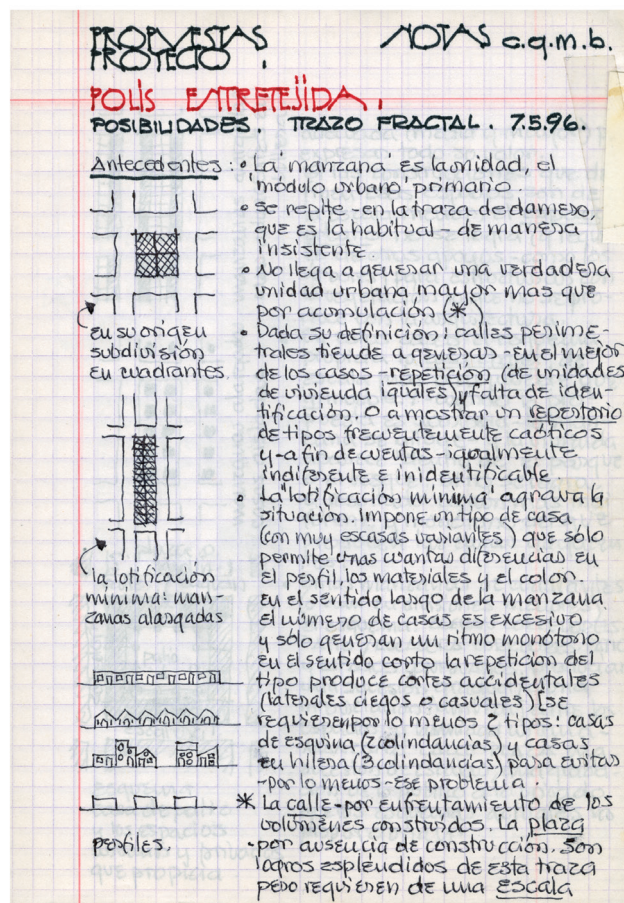 PROPUESTAS
PROYECTO.
NOTAS c.q.m.b.
POLIS ENTRETEJIDA.
POSIBILIDADES. TRAZO FRACTAL. 7.5.96.
Antecedentes:
• La 'manzana' es la unidad, el
'módulo urbano' primario.
• se repite - en la traza de damero,
que es la habitual - de manera
insistente.
• No llega a generar una verdadera
unidad urbana mayor mas que
por acumulación (*)
• Dada su definición: calles perime-
trales tiende a generar - en el mejor
de los casos - repetición (de unidades
de vivienda iguales) y falta de iden-
tificación. O a mostrar un repertorio
de tipos frecuentemente caóticos
y - a fin de cuentas - igualmente
indiferente e inidentificable.
• La 'lotificación mínima' agrava la
situación. Impone un tipo de casa
(con muy escasas variantes) que sólo
permite unas cuantas diferencias en
el perfil, los materiales y el color.
en el sentido largo de la manzana
el número de casas es excesivo
y sólo generan un ritmo monótono.
en el sentido corto la repetición del
tipo produce cortes accidentales
(laterales ciegos o casuales) [se
requieren por lo menos 2 tipos: casas
de esquina (2 colindancias) y casas
en hilera (3 colindancias) para evitar
- por lo menos - ese problema.
* La calle - por enfrentamiento de los
volúmenes construidos. La plaza
- por ausencia de construcción. Son
logros espléndidos de esta traza
pero requieren de una escala
en su origen
subdivisión
en cuadrantes.
la lotificación
mínima: man-
zanas alargadas
perfiles.